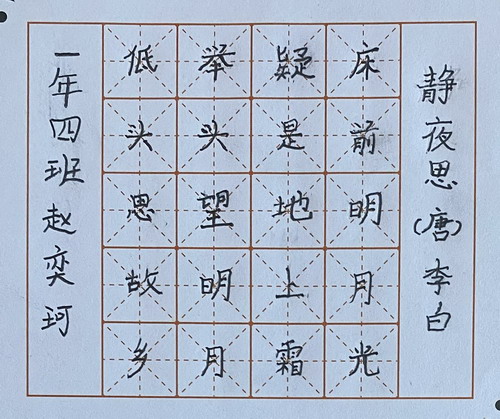 静夜思(唐)李白
床前明月光
疑是地上霜
举头望明月
低头思故乡
一年四班赵奕珂